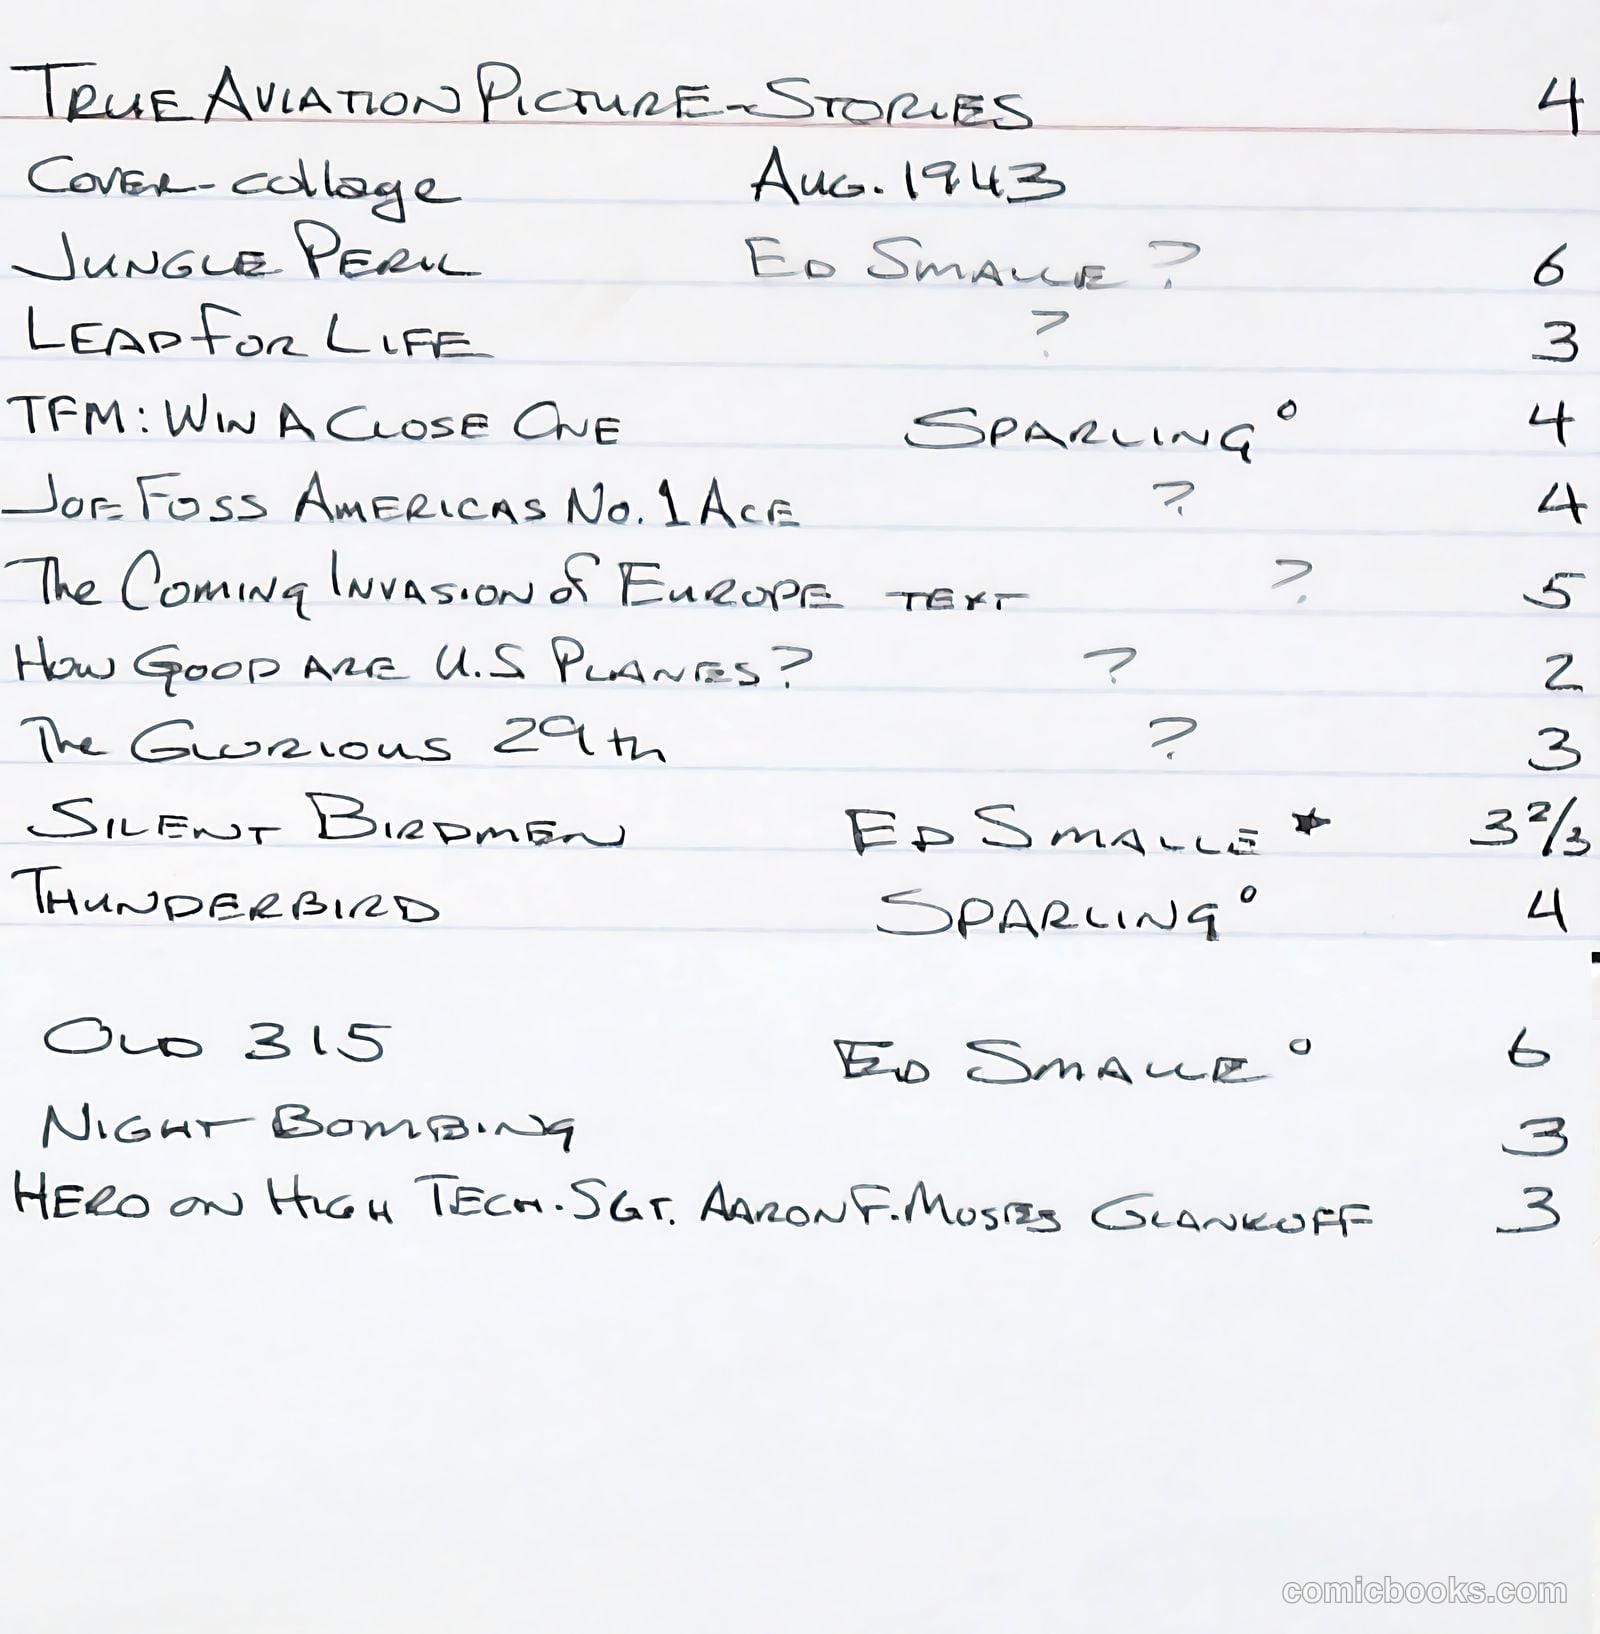 TRUE AVIATION PICTURE-STORIES 4
COVER-collage AUG. 1943
JUNGLE PERIL ED SMALLE ? 6
LEAP FOR LIFE ? 3
TFM: WIN A CLOSE ONE SPARLING° 4
JOE FOSS AMERICAS NO. 1 ACE ? 4
The COMING INVASION of EUROPE TEXT ? 5
HOW GOOD ARE U.S PLANES? ? 2
The GLORIOUS 29th ? 3
SILENT BIRDMEN ED SMALLE ★ 3 2/3
THUNDERBIRD SPARLING° 4
OLD 315 ED SMALLE° 6
NIGHT BOMBING 3
HERO ON HIGH TECH. SGT. AARON F. MOSES GLANKOFF 3
comicbooks.com